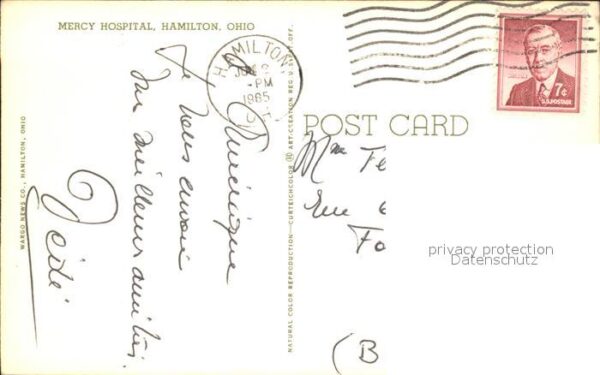 MERCY HOSPITAL, HAMILTON, OHIO
HAMILTON
PM
1965
7¢
U.S. POSTAGE
POST CARD
WARGO NEWS CO., HAMILTON, OHIO
NATURAL COLOR REPRODUCTION—CURTEICHCOLOR ® ART-CREATION REG. U.S. PAT. OFF.
d'Amérique
Je vous envoie
mes meilleures amitiés.
Mme Fe
Rue
Fo
(B
privacy protection
Datenschutz